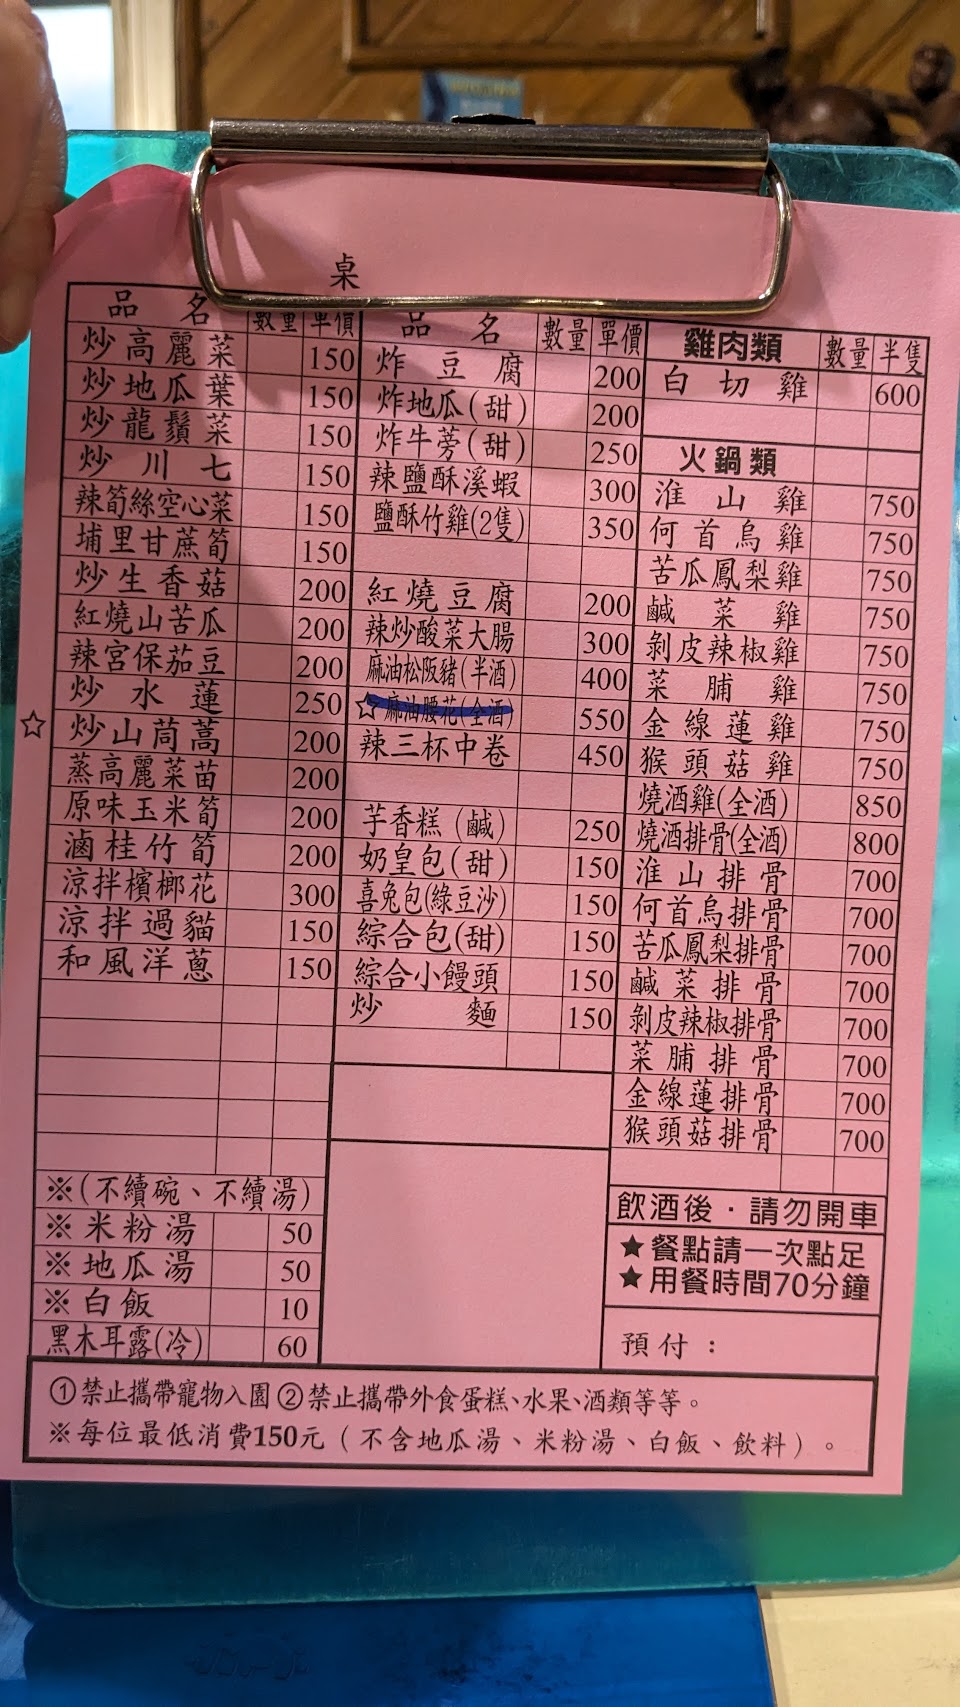 桌
品名 數量 單價
炒高麗菜 150
炒地瓜葉 150
炒龍鬚菜 150
炒川七 150
辣筍絲空心菜 150
埔里甘蔗筍 150
炒生香菇 200
紅燒山苦瓜 200
辣宮保茄豆 200
炒水蓮 250
☆炒山茼蒿 200
蒸高麗菜苗 200
原味玉米筍 200
滷桂竹筍 200
涼拌檳榔花 300
涼拌過貓 150
和風洋蔥 150
※(不續碗、不續湯)
※米粉湯 50
※地瓜湯 50
※白飯 10
黑木耳露(冷) 60
品名 數量 單價
炸豆腐 200
炸地瓜(甜) 200
炸牛蒡(甜) 250
辣鹽酥溪蝦 300
鹽酥竹雞(2隻) 350
紅燒豆腐 200
辣炒酸菜大腸 300
麻油松阪豬(半酒) 400
☆麻油腰花(全酒) 550
辣三杯中卷 450
芋香糕(鹹) 250
奶皇包(甜) 150
喜兔包(綠豆沙) 150
綜合包(甜) 150
綜合小饅頭 150
炒麵 150
雞肉類 數量 半隻
白切雞 600
火鍋類
淮山雞 750
何首烏雞 750
苦瓜鳳梨雞 750
鹹菜雞 750
剝皮辣椒雞 750
菜脯雞 750
金線蓮雞 750
猴頭菇雞 750
燒酒雞(全酒) 850
燒酒排骨(全酒) 800
淮山排骨 700
何首烏排骨 700
苦瓜鳳梨排骨 700
鹹菜排骨 700
剝皮辣椒排骨 700
菜脯排骨 700
金線蓮排骨 700
猴頭菇排骨 700
飲酒後·請勿開車
★餐點請一次點足
★用餐時間70分鐘
預付：
①禁止攜帶寵物入園②禁止攜帶外食蛋糕、水果、酒類等等。
※每位最低消費150元（不含地瓜湯、米粉湯、白飯、飲料）。